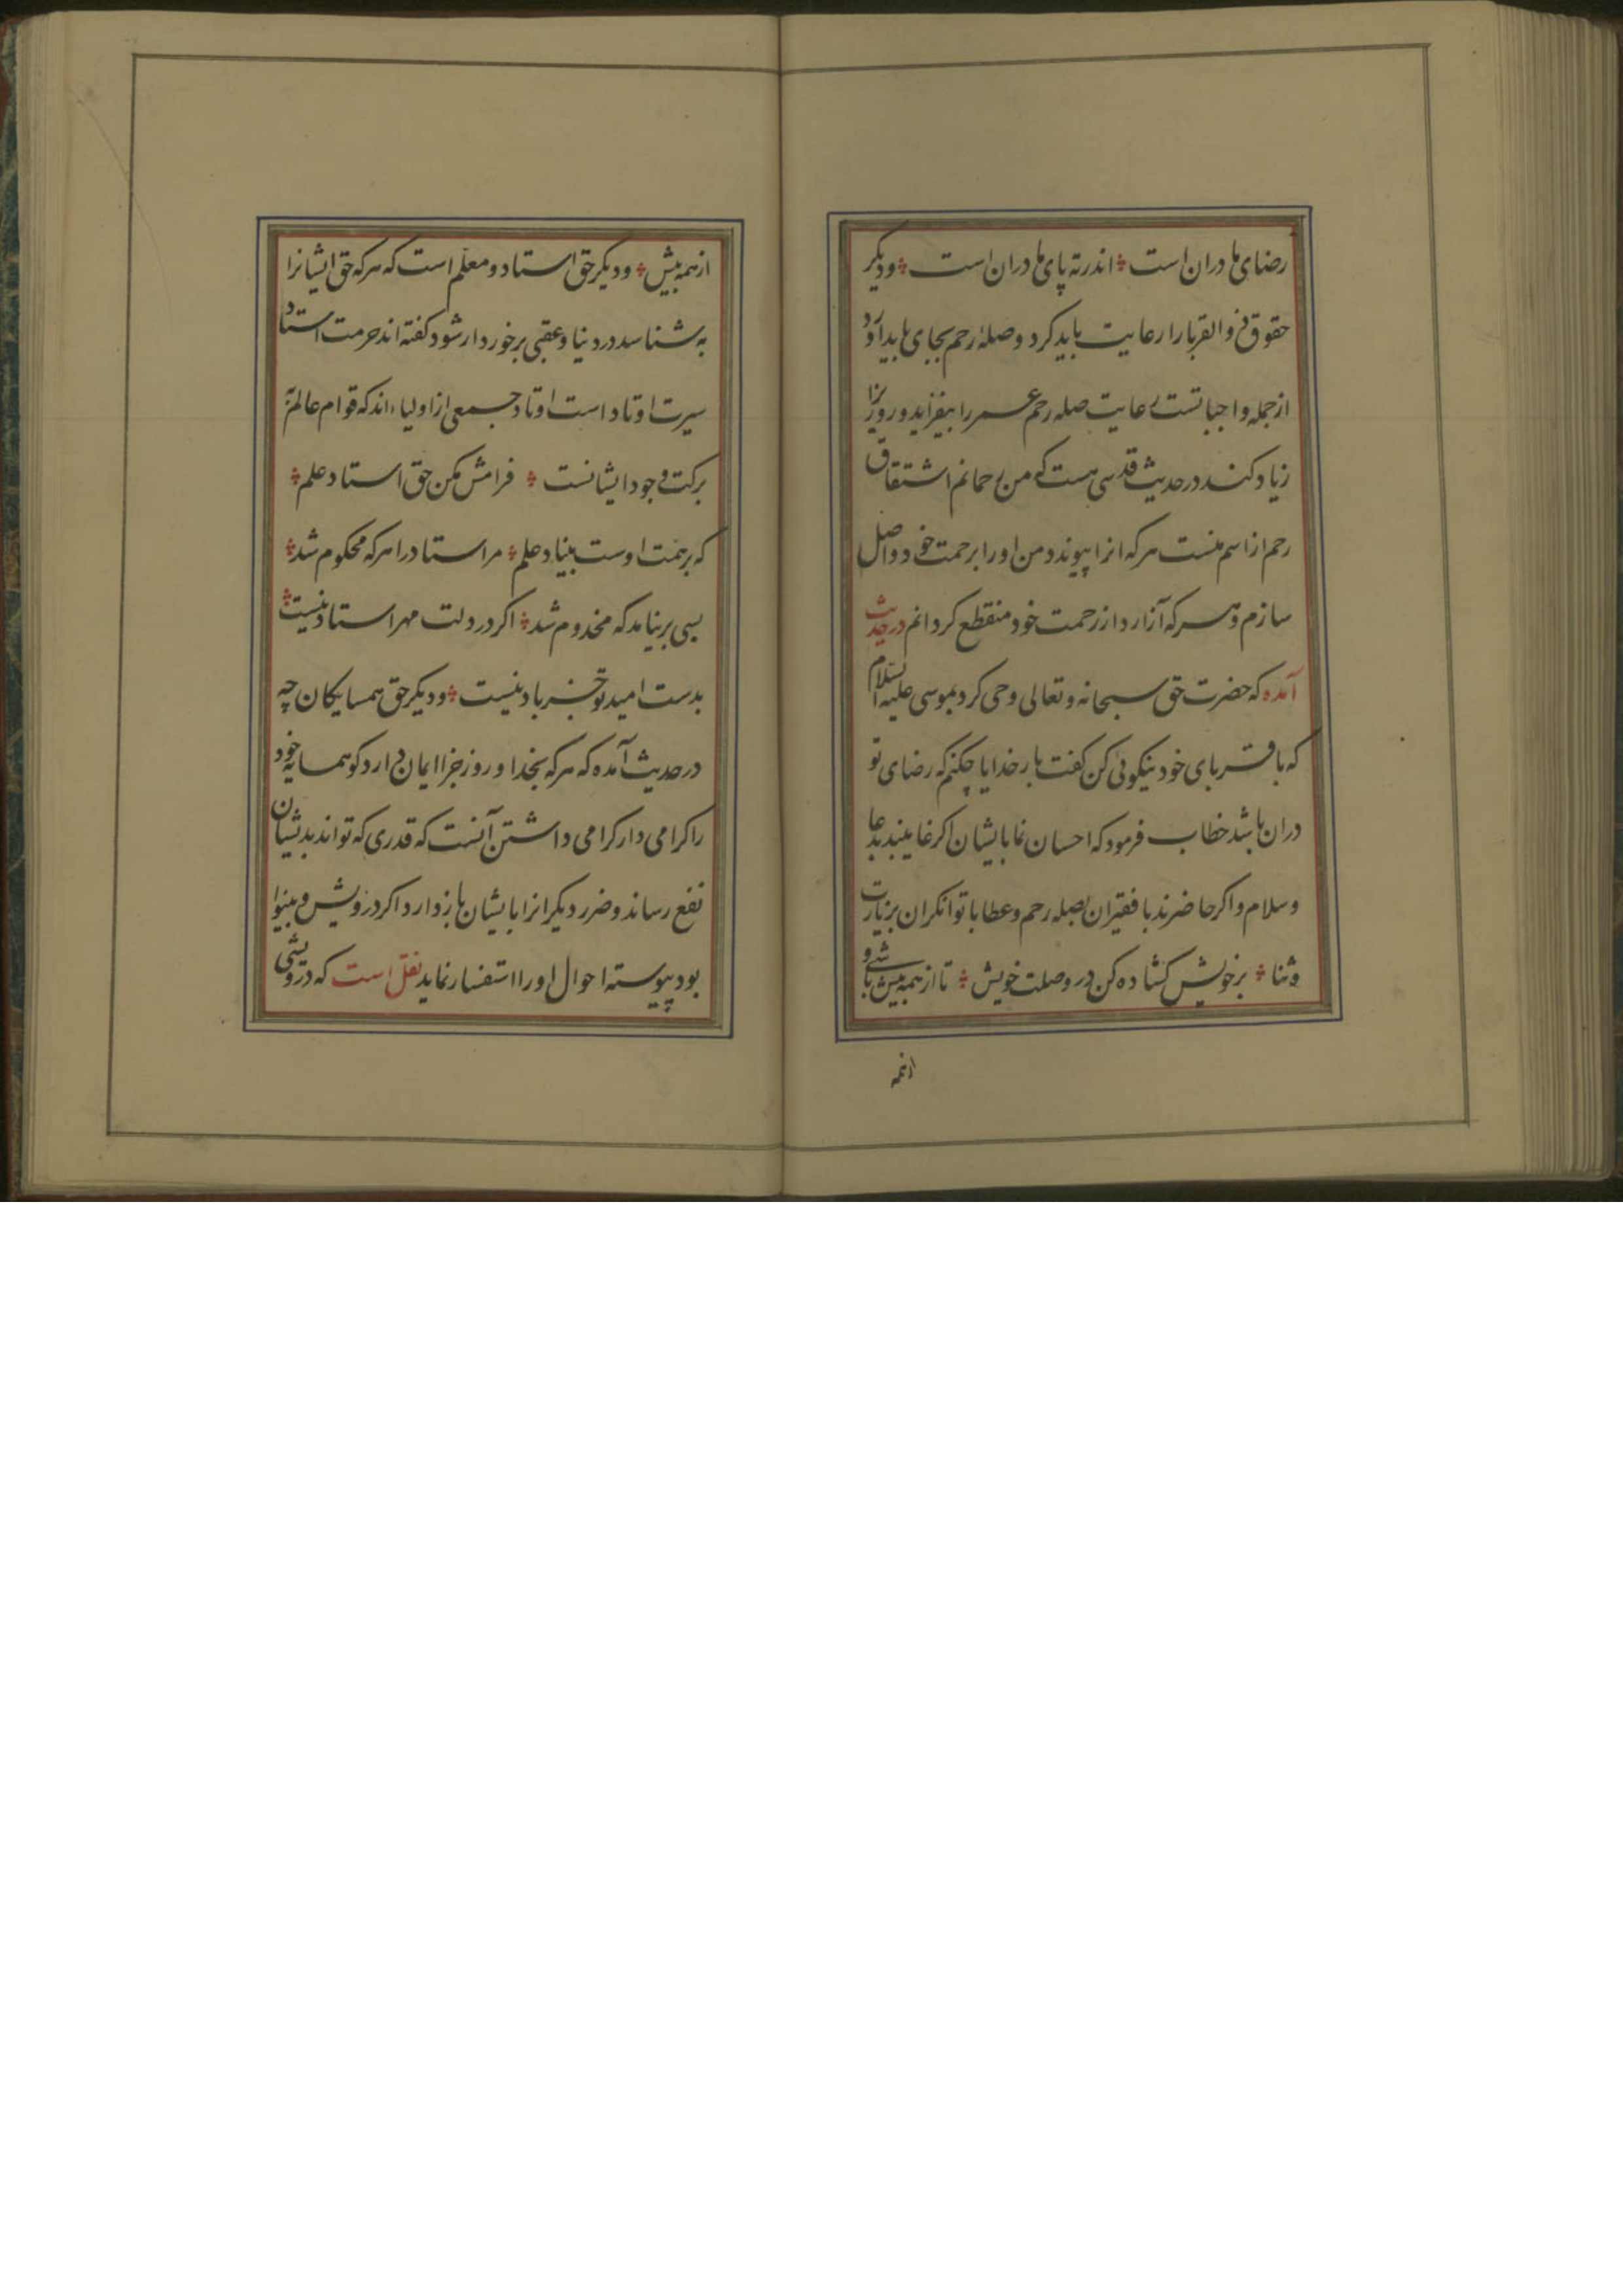 رضای مادران است ؞ اندر ته پای مادران است ؞ ودیکر
حقوق ذو القربا را رعایت باید کرد وصلۀ رحم بجای باید آورد
از جمله واجباتست رعایت صله رحم عمر را بیفزاید و روزیرا
زیاد کند در حدیث قدسی هست که من رحمانم اشتقاق
رحم از اسم منست هر که انرا پیوندد من او را برحمت خود واصل
سازم و هر که آزارد از رحمت خود منقطع کردانم در حدیث
آمده که حضرت حق سبحانه و تعالی وحی کرد بموسی علیه السلام
که با قربای خود نیکوئی کن کفت بار خدایا چکنم که رضای تو
دران باشد خطاب فرمود که احسان نما بایشان اکر غایبند بدعا
وسلام و اکر حاضرند با فقیران بصله رحم و عطا با توانکران بزیارت
وثنا ؞ بر خویش کشاده کن در وصلت خویش ؞ تا از همه بیش باشی و
ازهمه
از همه بیش ؞ ودیکر حق استاد و معلم است که هر که حق ایشانرا
به شناسد در دنیا و عقبی برخوردار شود کفته اند حرمت استاد
سیرت اوتاد است اوتاد جمعی از اولیاء اند که قوام عالم به
برکت وجود ایشانست ؞ فرامش مکن حق استاد علم ؞
که بر همت اوست بنیاد علم ؞ مر استاد را هر که محکوم شد ؞
بسی بر نیامد که مخدوم شد ؞ اکر در دلت مهر استاد نیست ؞
بدست امید تو جز باد نیست ؞ ودیکر حق همسایکان چه
در حدیث آمده که هر که بخدا و روز جزا ایمان دارد کو همسایه خود
را کرامی دار کرامی داشتن آنست که قدری که تواند بدیشان
نفع رساند و ضرر دیکرانرا بایشان باز دارد اکر درویش و بینوا
بود پیوسته احوال او را استفسار نماید نقل است که درویشی